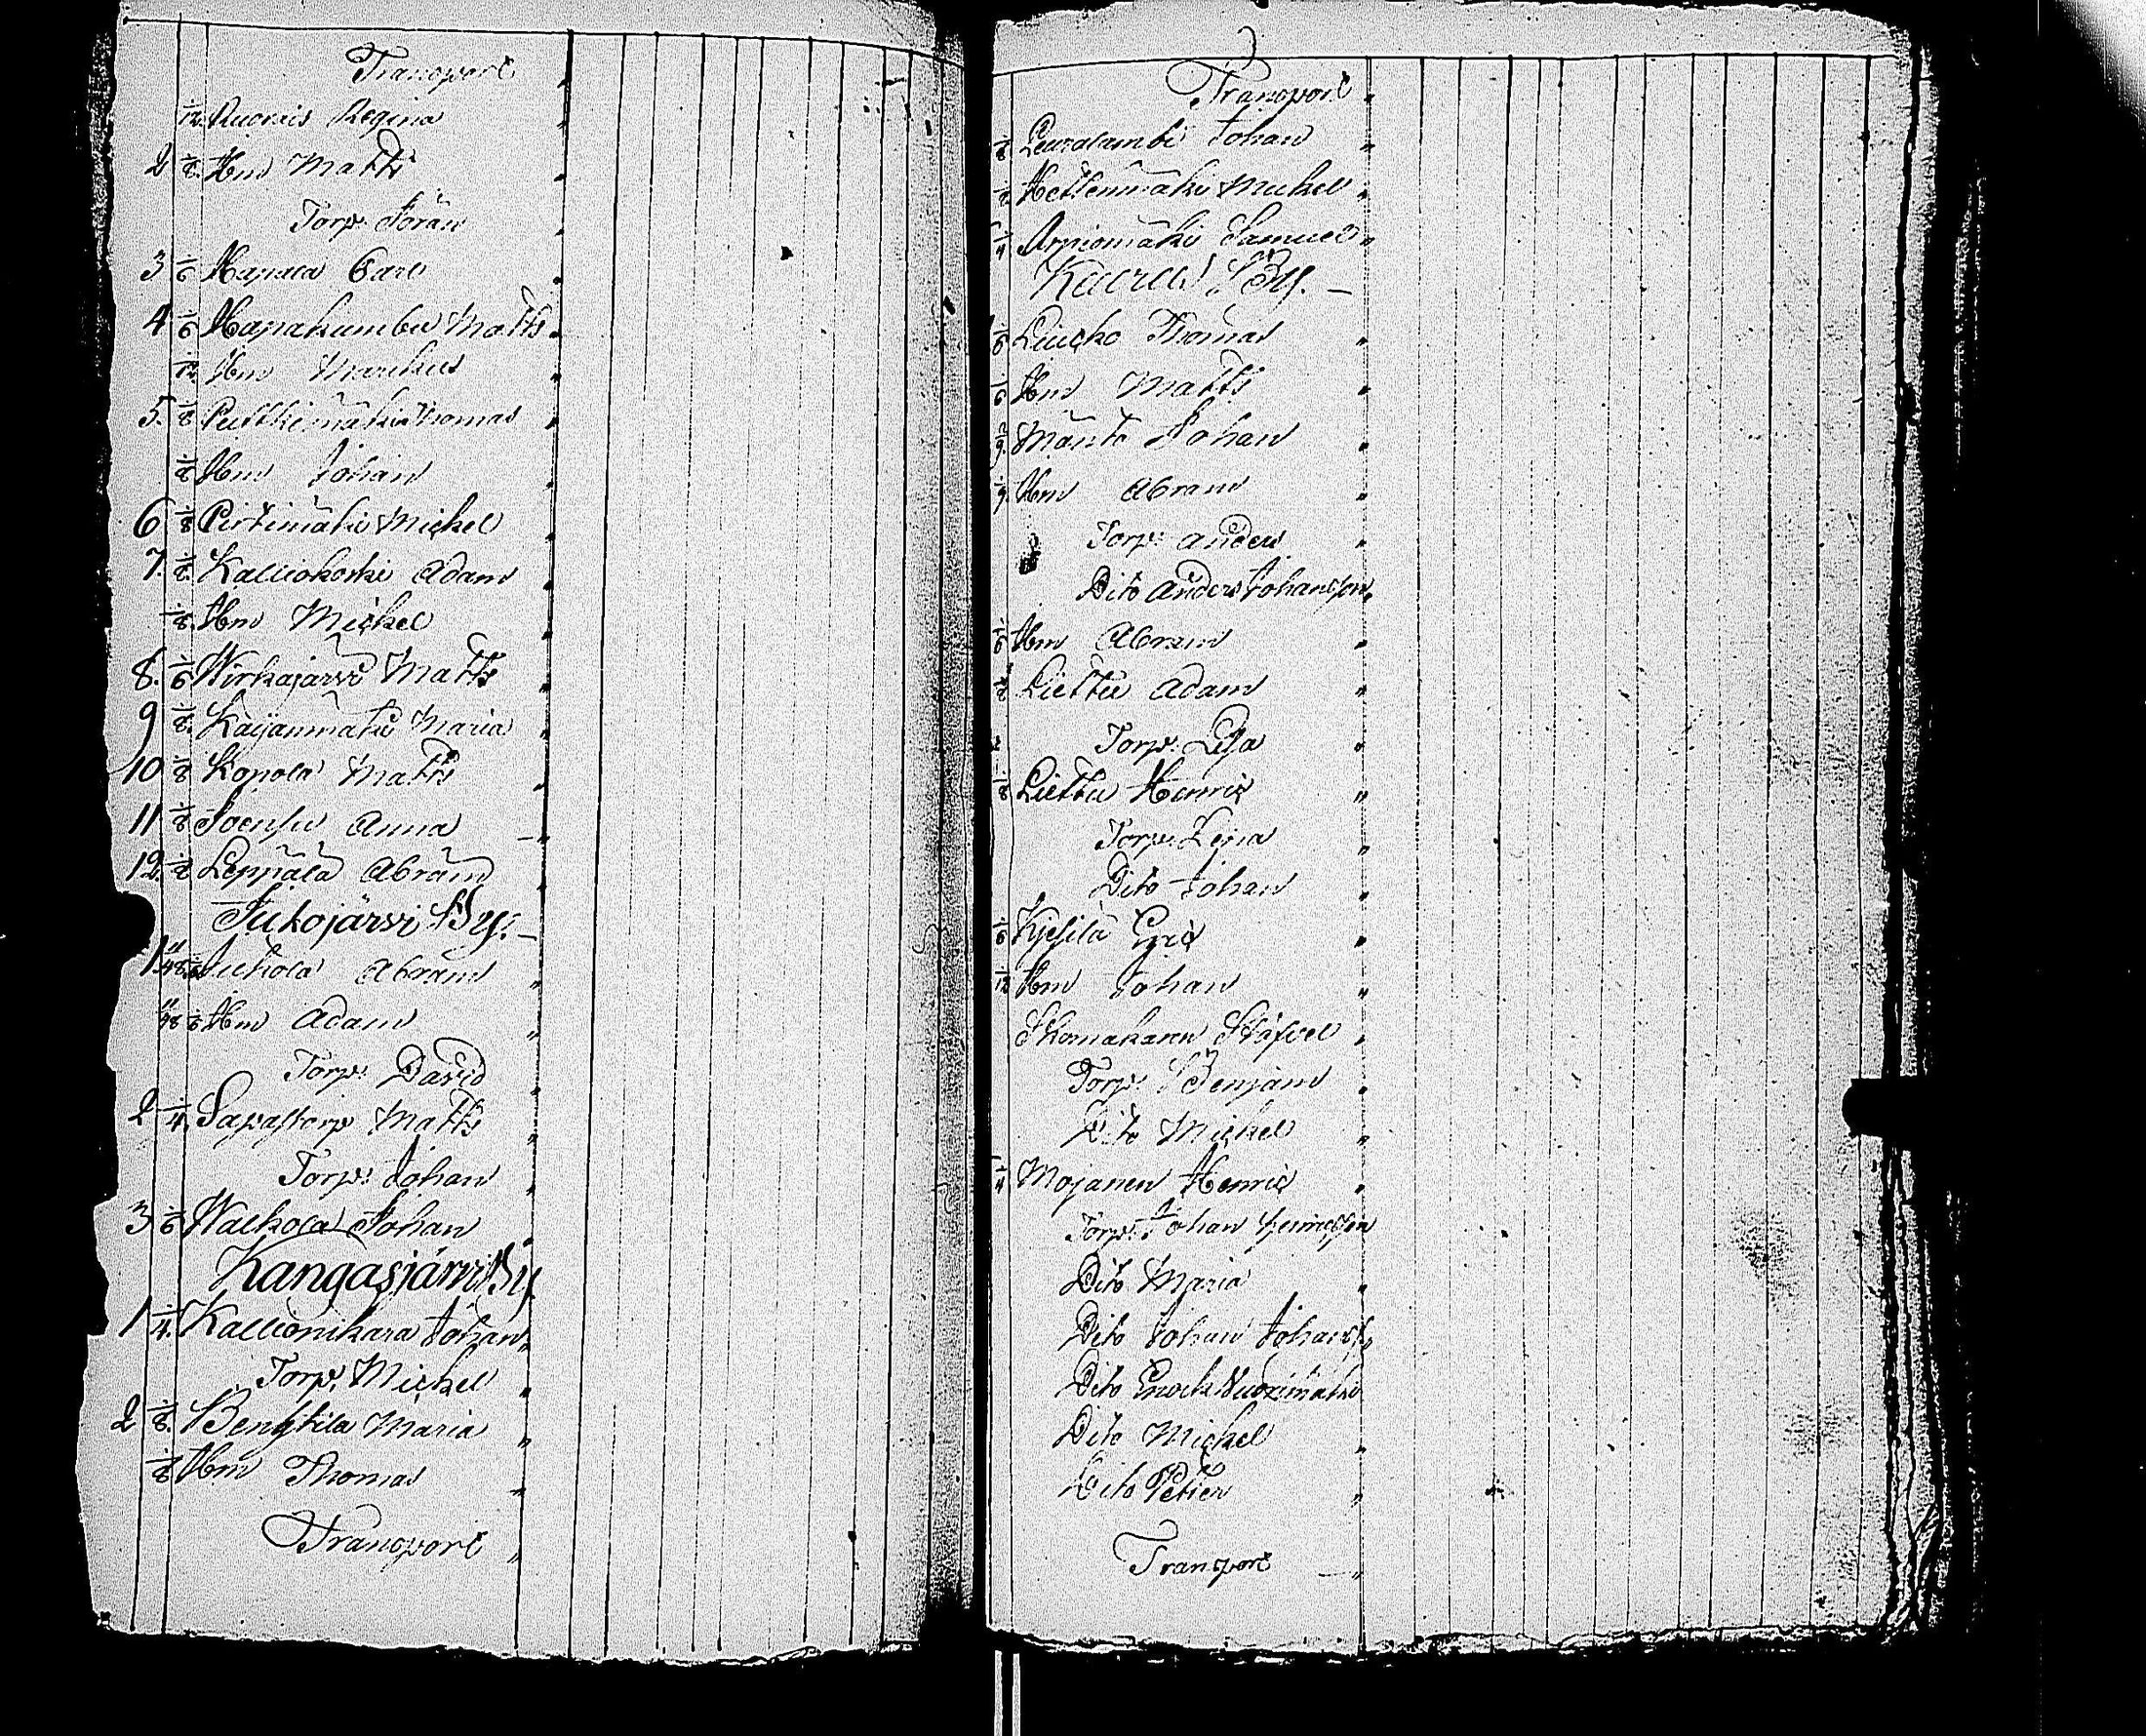 Transport
1/12 Ruoxais Regina
2 1/8 Hm Matts
Torp. Jöran
3 1/6 Hapala Carl
4 1/6 Hapakumbu Matts
1/12 Hm Markus
5. 1/8 Pultkimäki Thomas
1/8 Hm Johan
6 1/8 Pirtimäki Mickel
7. 1/8 Kalliokoski Adam
1/8 Hm Mickel
8. 1/6 Wirkajärvi Matts
9 1/8 Kaijanmäki Maria
10 1/8 Kopola Matts
11 1/8 Joensu Anna
12. 1/8 Leppälä Abram
Jukojärvi By.
1 11/48 Jukola Abram
11/48 Hm Adam
Torp. David
2 1/4 Sapastorp Matts
Torp. Johan
3 1/6 Walkola Johan
Kangasjärvi By
1 1/4 Kallionikara Johan
Torp. Mickel
2 1/8 Bengtila Maria
1/8 Hm Thomas
Transport
3
Transport
1/8 Leuralambi Johan
Hettenmäki Mickel
1/4 Arpiomäki Samuel
By.
1/6 Liucko Thomas
1/6 Hm Matts
Mänto Johan
1/9 Hm Abram
Torp. Anders
Dito Anders Johansson
1/6 Hm Abram
1/8 Liettu Adam
Torp. Lisa
1/8 Liettu Henric
Torp. Lena
Dito Johan
1/6 Kjesilä Eric
1/12 Hm Johan
Skomakaren Stafvel
Torp. Benjam
Dito Mickel
1/4 Mojanen Henric
Torp. Johan Henricsson
Dito Maria
Dito Johan Johans
Dito Enock Vuorimäki
Dito Mickel
Dito Petter
Transport